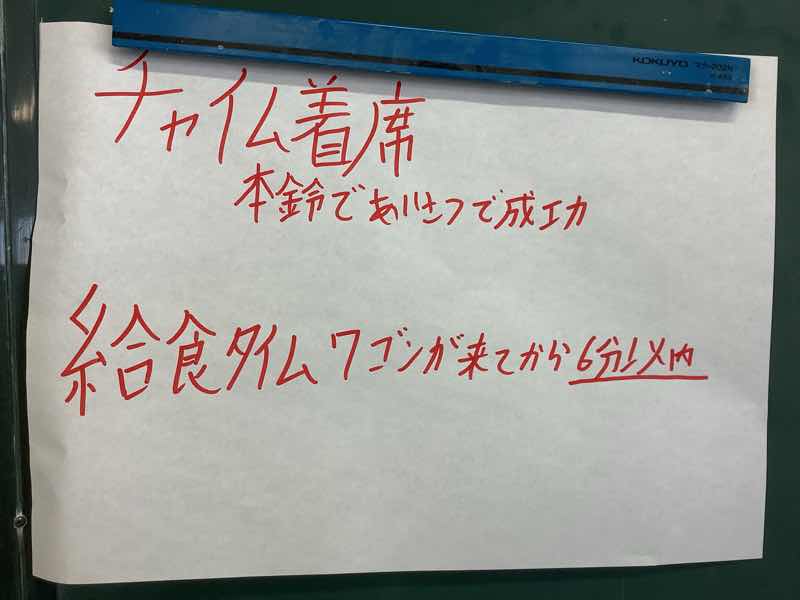 KOKUYO
チャイム着席
本鈴であいさつで成功
給食タイム ワゴンが来てから6分以内